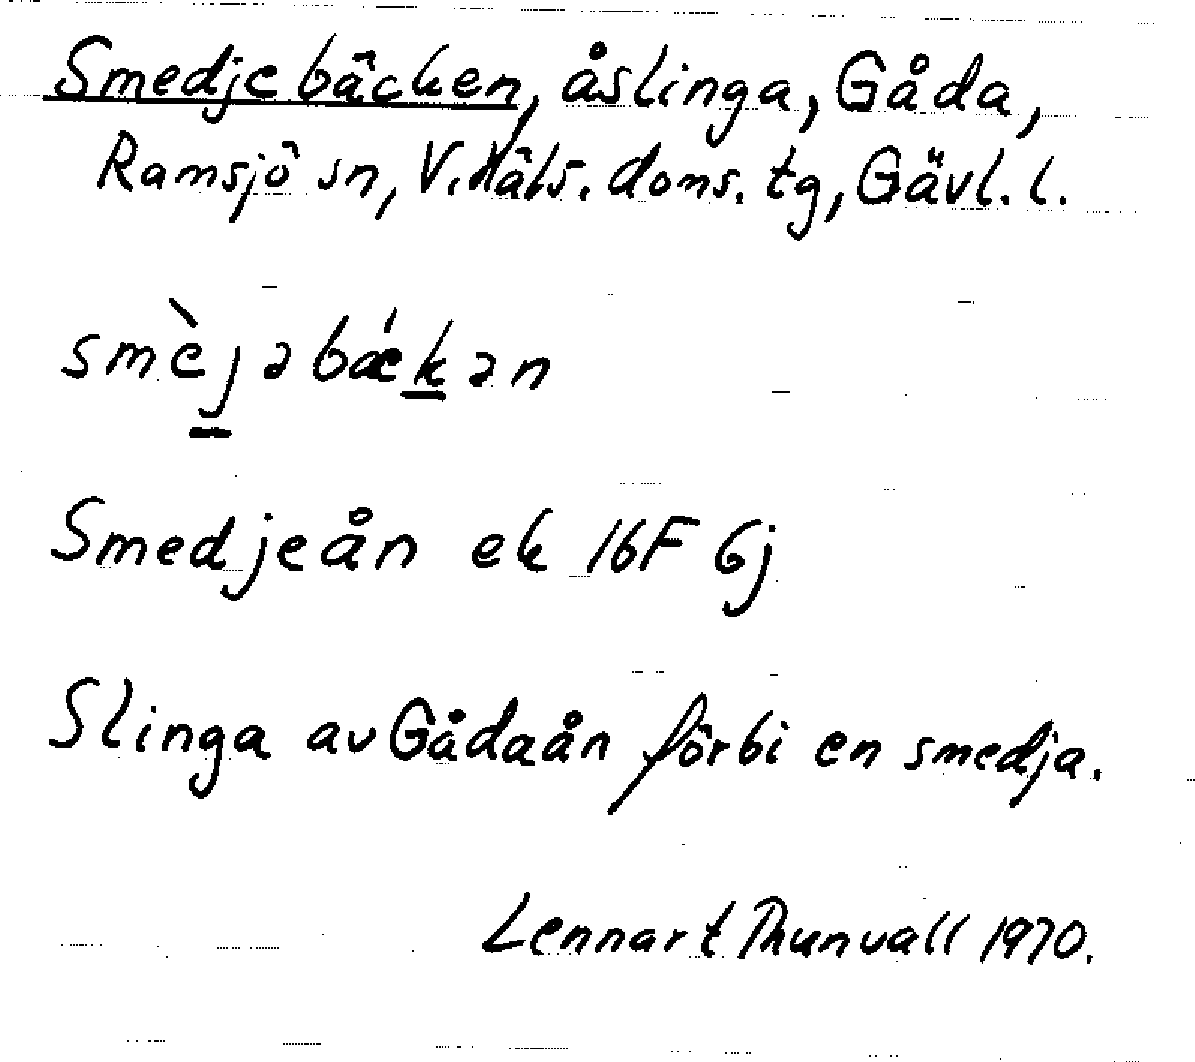 Smedjebäcken, åslinga, Gåda,
Ramsjö sn, V. Häls. doms. tg, Gävl. l.
smèjəbǽkən
Smedjeån ek 16F 6j
Slinga av Gådaån förbi en smedja.
Lennart Thunvall 1970.